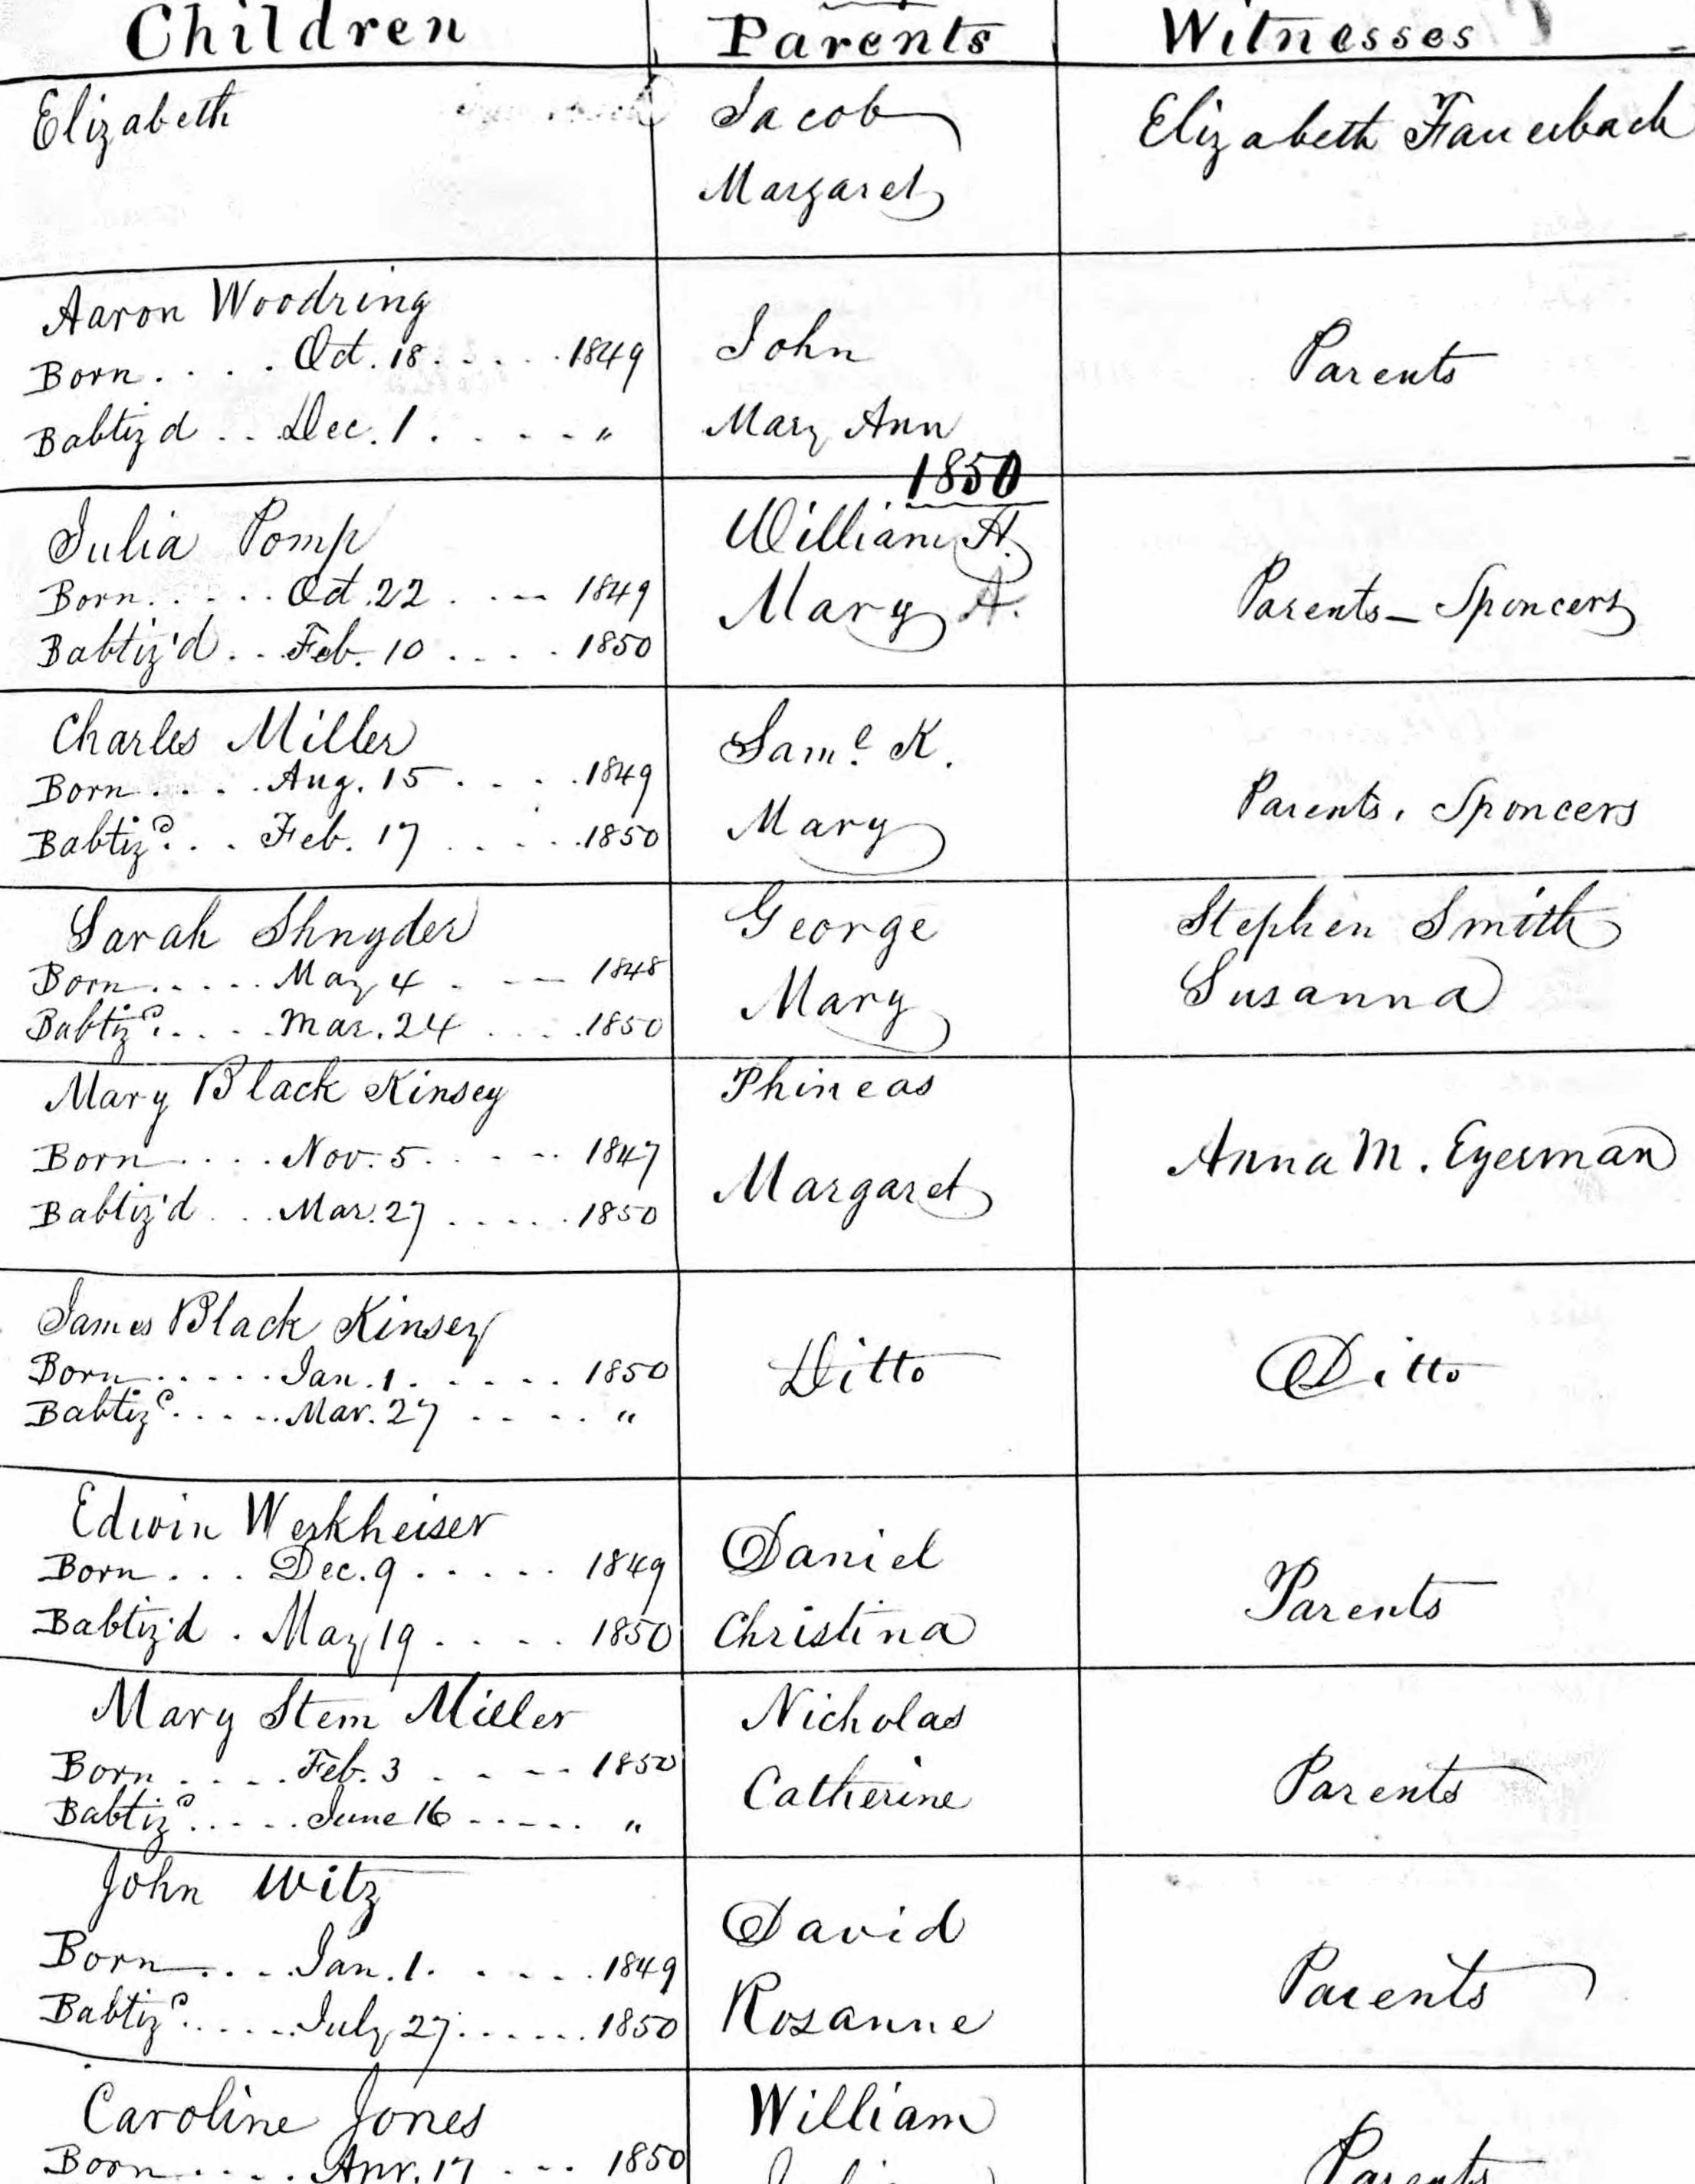 Children Parents Witnesses
Elizabeth Jacob Elizabeth Fauerbach
Margaret
Aaron Woodring
Born.... Oct. 18..... 1849 John Parents
Babtiz'd ... Dec. 1..... " Mary Ann
1850
Julia Pomp William A.
Born..... Oct. 22 ..-- 1849 Mary A. Parents – Sponcers
Babtiz'd... Feb. 10 .... 1850
Charles Miller Saml. K.
Born.... Aug. 15.... 1849 Parents. Sponcers
Babtizd... Feb. 17 ..... 1850 Mary
Sarah Shnyder George Stephen Smith
Born..... May 4 . -- 1848 Mary Susanna
Babtizd.... Mar. 24 .... 1850
Mary Black Kinsey Phineas
Born.... Nov. 5..... 1847 Anna M. Eyerman
Babtiz'd ... Mar. 27..... 1850 Margaret
James Black Kinsey
Born..... Jan. 1..... 1850 Ditto Ditto
Babtizd..... Mar. 27 .... "
Edwin Werkheiser
Born... Dec. 9..... 1849 Daniel Parents
Babtiz'd . May 19.... 1850 Christina
Mary Stem Miller Nicholas
Born..... Feb. 3 .... 1850 Catherine Parents
Babtizd..... June 16 ..... "
John Witz
Born.... Jan. 1..... 1849 David Parents
Babtizd..... July 27...... 1850 Rosanne
Caroline Jones William
Born.... Apr. 17 ... 1850 Parents